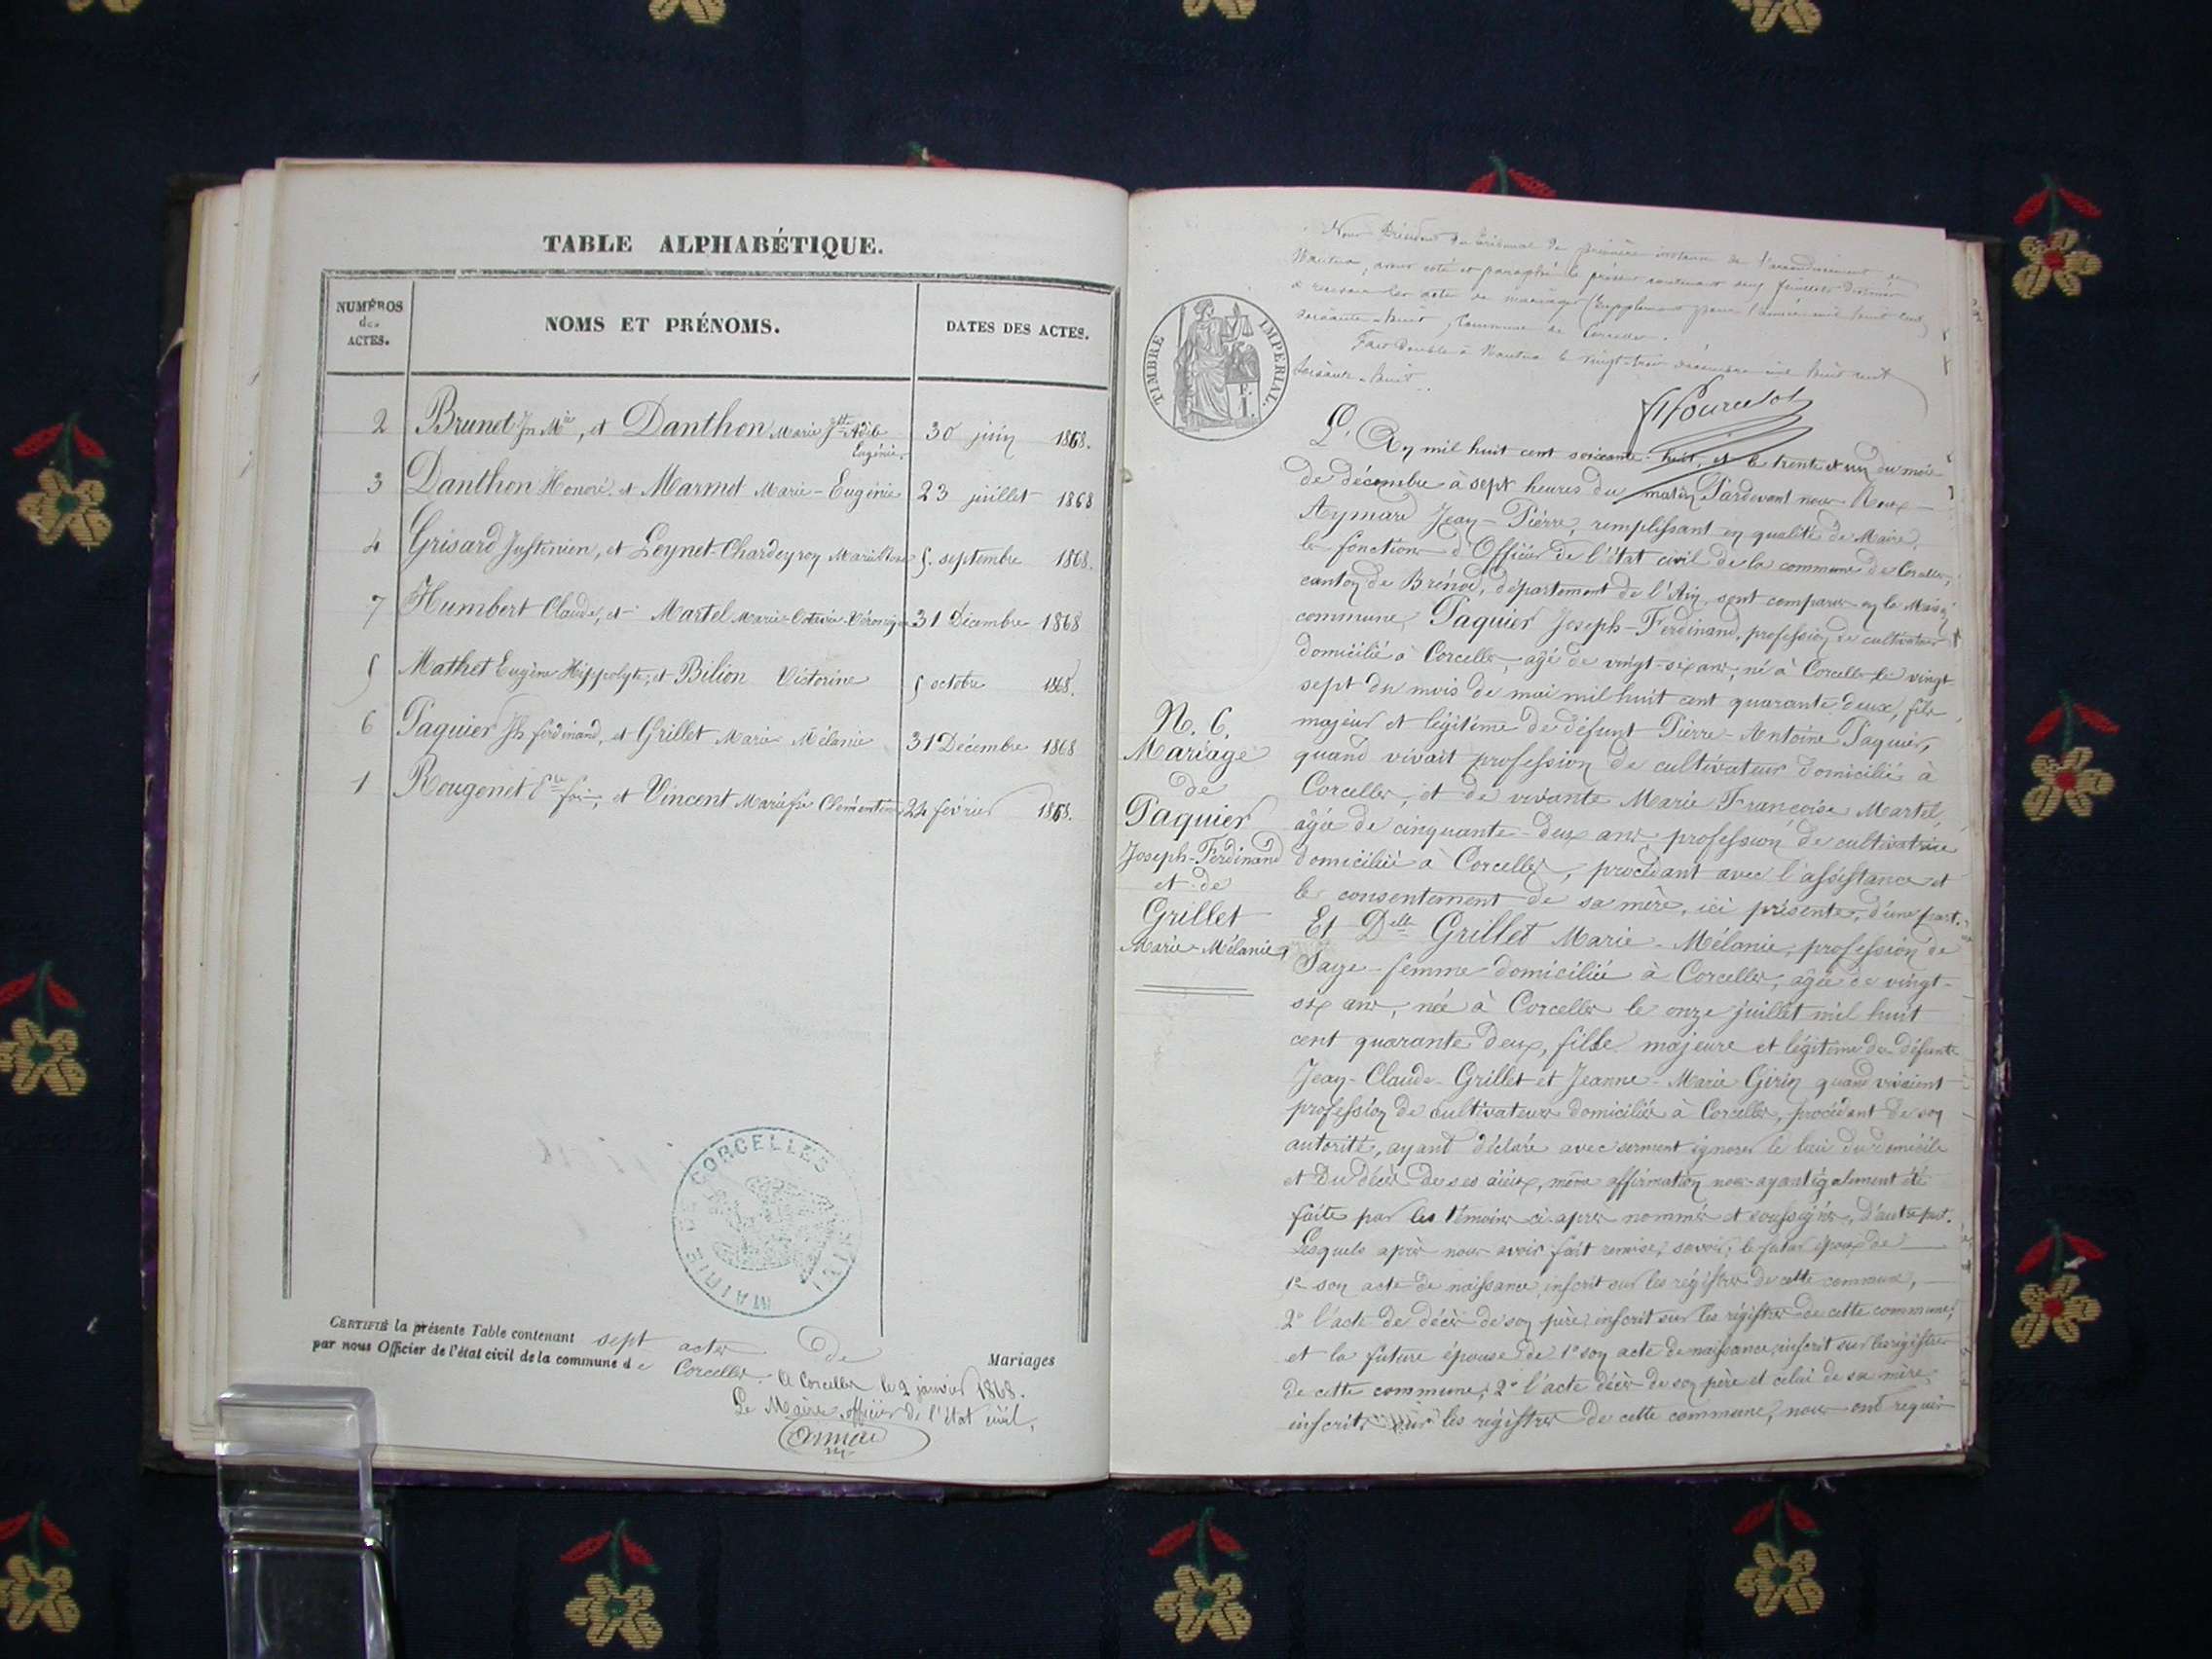 TABLE ALPHABÉTIQUE.
NUMÉROS des ACTES.
NOMS ET PRÉNOMS.
DATES DES ACTES.
2 Brunet Jn Mie, et Danthon Marie Jtte Adèle Eugénie. 30 juin 1868.
3 Danthon Honoré et Marmet Marie-Eugénie 23 juillet 1868
4 Grisard Justinien, et Leynet-Chardeyron Marie 5. septembre 1868.
7 Humbert Claude, et Martel Marie 31 Décembre 1868
5 Mathet Eugène Hippolyte, et Bilion Victorine 5 octobre 1868.
6 Paquier Jh ferdinand, et Grillet Marie Mélanie 31 Décembre 1868
1 Rougenet et Vincent Marie Clémentine 24 février 1868.
MAIRIE DE CORCELLES (AIN)
CERTIFIÉ la présente Table contenant sept actes de Mariages
par nous Officier de l'état civil de la commune de Corcelles. A Corcelles le 2 janvier 1868.
Le Maire officier de l'état civil,
TIMBRE IMPÉRIAL.
E. I.
Nous Président du Tribunal de première instance de l'arrondissement de
Nantua, avons coté et paraphé le présent contenant feuillets destinés
à recevoir les actes de mariages (supplément pour l'année mil huit cent
soixante-huit, Commune de Corcelles.
Fait double à Nantua le vingt-trois décembre mil huit cent
soixante-huit.
L'An mil huit cent soixante-huit, et le trente et un du mois
de décembre à sept heures du matin Pardevant nous Roux
Aymard Jean-Pierre, remplissant en qualité de Maire,
les fonctions d'Officier de l'état civil de la commune de Corcelles,
canton de Brénod, département de l'Ain, sont comparus en la Maison
commune, Paquier Joseph-Ferdinand, profession de cultivateur
domicilié à Corcelles, âgé de vingt-six ans, né à Corcelles le vingt-
sept du mois de mai mil huit cent quarante deux, fils
majeur et légitime de défunt Pierre-Antoine Paquier,
quand vivait profession de cultivateur domicilié à
Corcelles, et de vivante Marie Françoise Martel,
âgée de cinquante-deux ans, profession de cultivatrice
domiciliée à Corcelles, procédant avec l'assistance et
le consentement de sa mère, ici présente, d'une part.
N. 6.
Mariage
de
Paquier
Joseph-Ferdinand
et de
Grillet
Marie-Mélanie
Et Delle Grillet Marie-Mélanie, profession de
Sage-femme domiciliée à Corcelles, âgée de vingt-
six ans, née à Corcelles le onze juillet mil huit
cent quarante deux, fille majeure et légitime de défunts
Jean-Claude Grillet et Jeanne-Marie Girin quand vivaient
profession de cultivateurs domiciliés à Corcelles, procédant de son
autorité, ayant déclaré avec serment ignorer le lieu du domicile
et du décès de ses aïeux, même affirmation nous ayant également été
faite par les témoins ci-après nommés et soussignés, d'autre part.
Lesquels après nous avoir fait remise, savoir, le futur époux de
1° son acte de naissance, inscrit sur les régistres de cette commune,
2° l'acte de décès de son père, inscrit sur les régistres de cette commune;
et la future épouse de 1° son acte de naissance, inscrit sur les régistres
de cette commune, 2° l'acte décès de son père et celui de sa mère,
inscrits sur les régistres de cette commune, nous ont requis